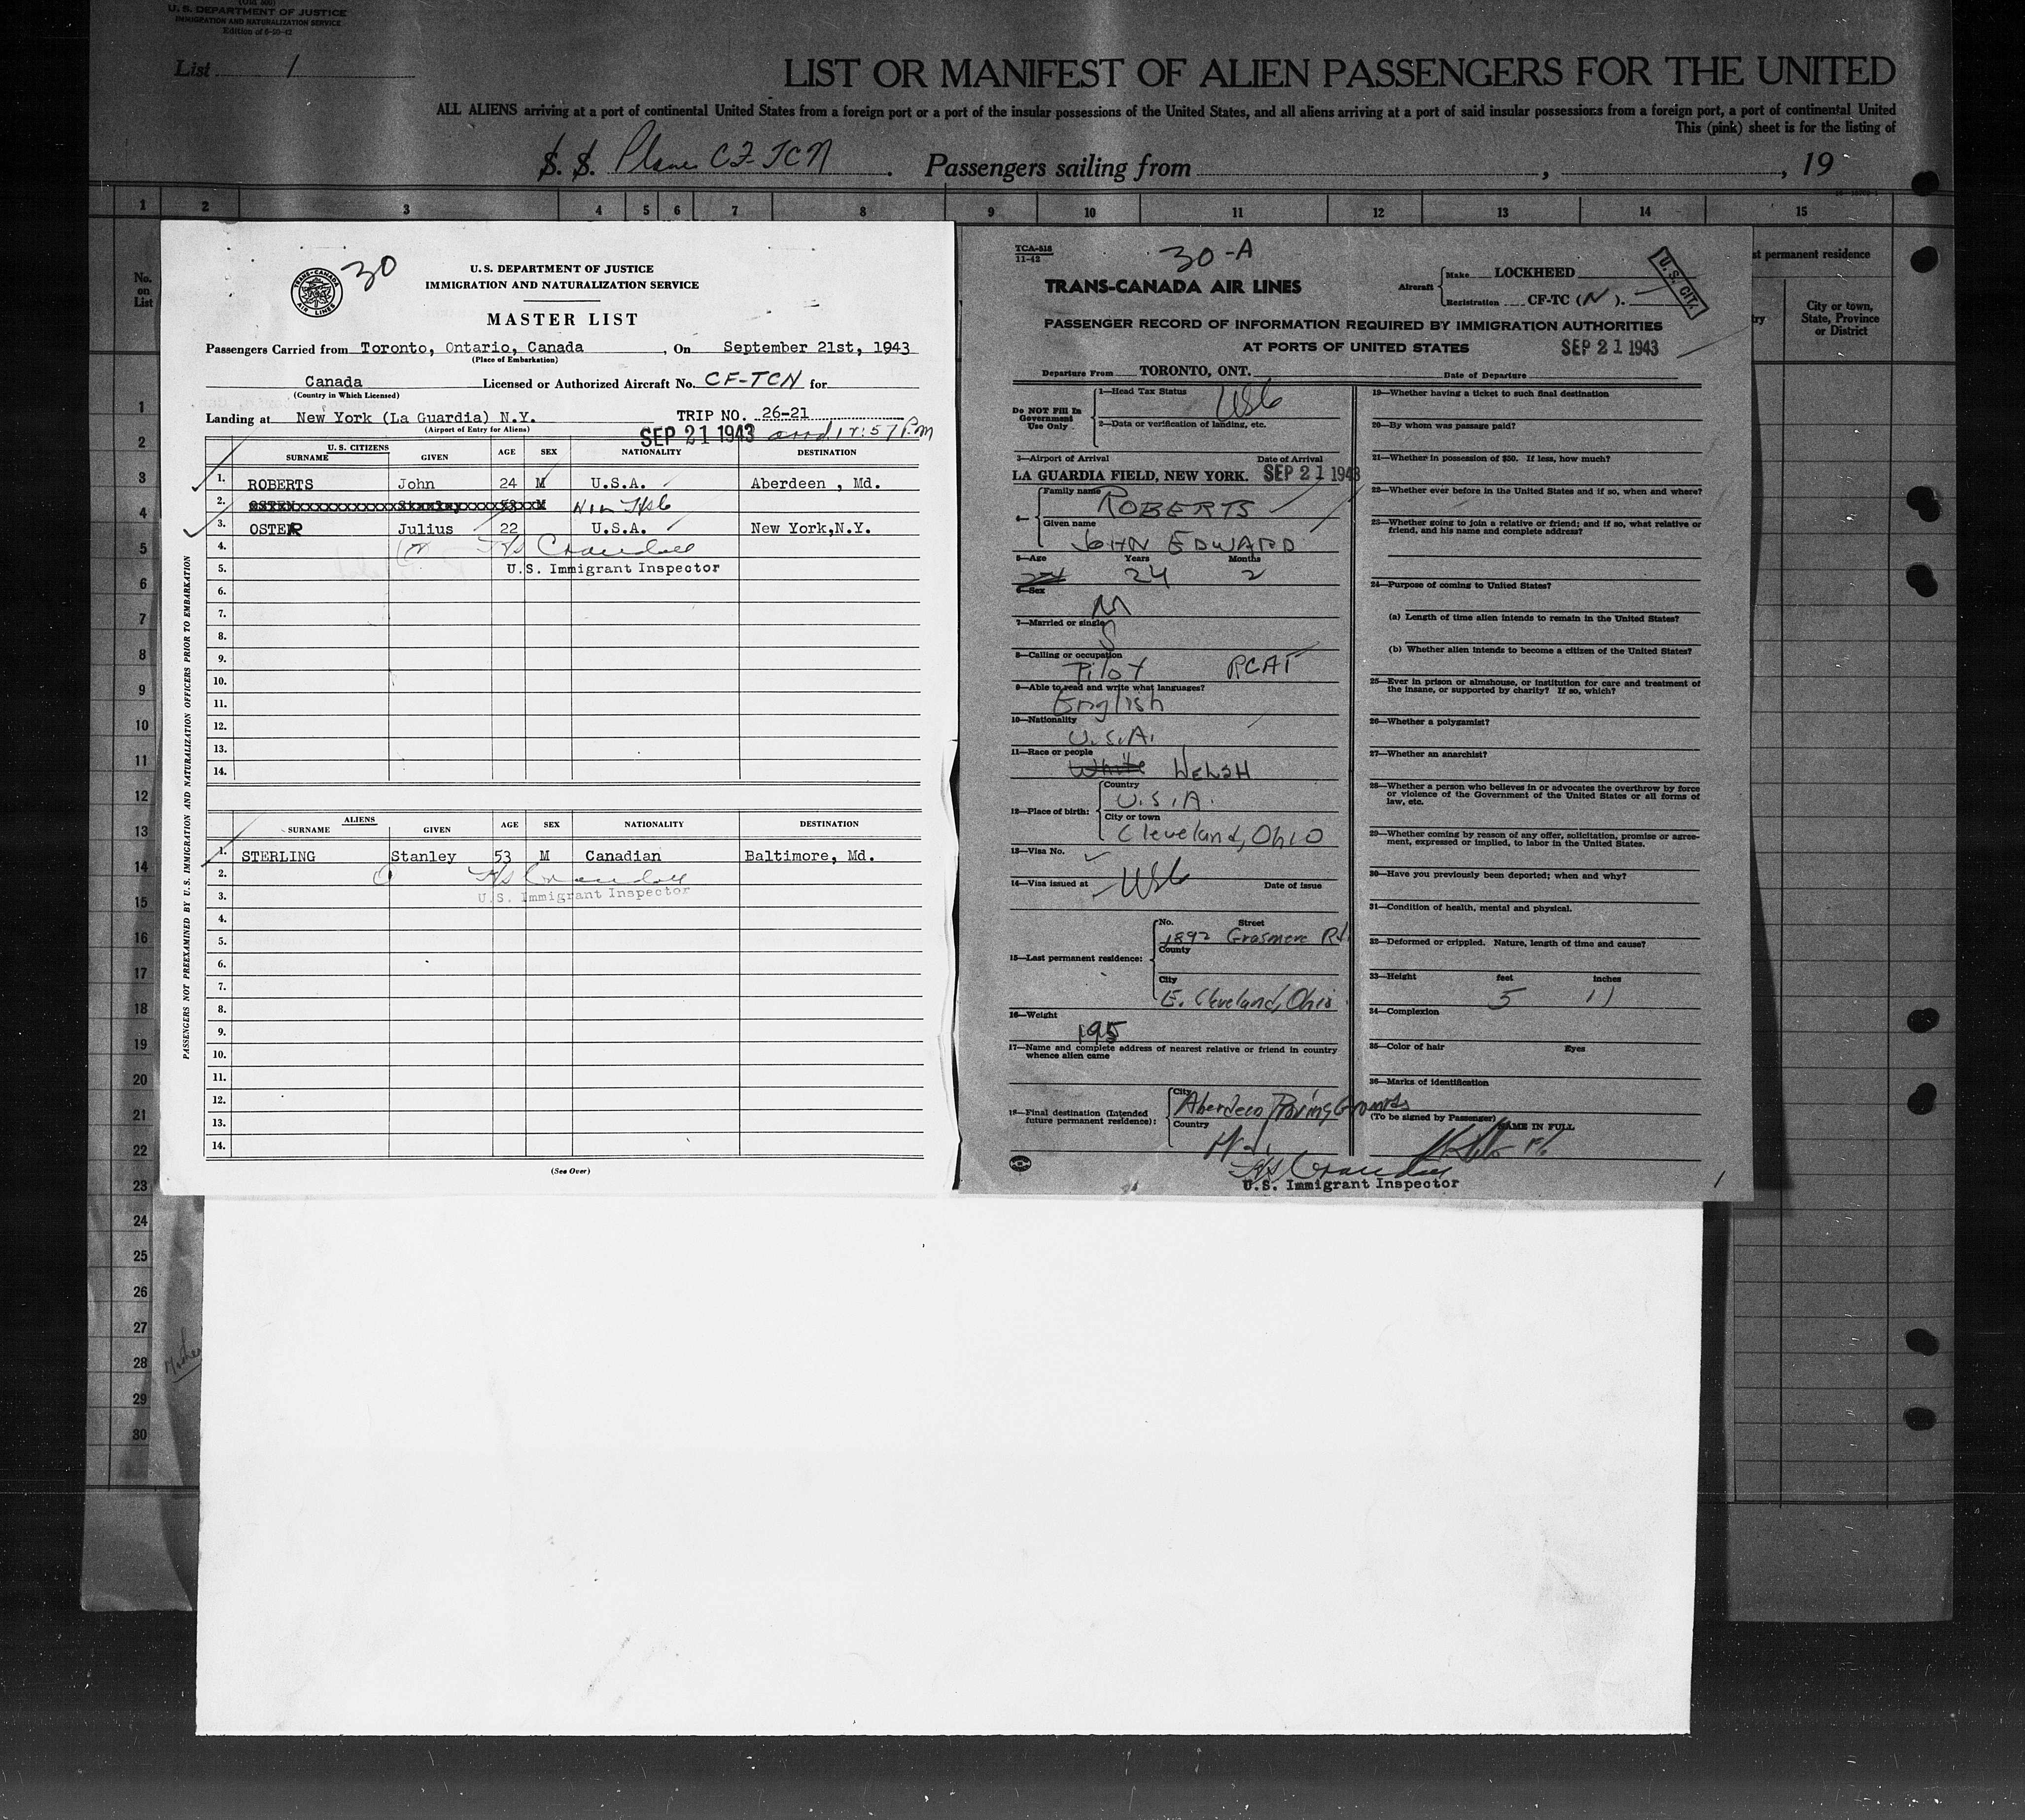 (Old 500)
U. S. DEPARTMENT OF JUSTICE
IMMIGRATION AND NATURALIZATION SERVICE
Edition of 6-20-42
List 1
LIST OR MANIFEST OF ALIEN PASSENGERS FOR THE UNITED
ALL ALIENS arriving at a port of continental United States from a foreign port or a port of the insular possessions of the United States, and all aliens arriving at a port of said insular possessions from a foreign port, a port of continental United
This (pink) sheet is for the listing of
S. S. Plane CF-TCN. Passengers sailing from , , 19
1 2 3 4 5 6 7 8 9 10 11 12 13 14 15
No. on List
st permanent residence
ry
City or town, State, Province or District
1
2
3
4
5
6
7
8
9
10
11
12
13
14
15
16
17
18
19
20
21
22
23
24
25
26
27
28
29
30
TRANS-CANADA AIR LINES
30
U. S. DEPARTMENT OF JUSTICE
IMMIGRATION AND NATURALIZATION SERVICE
MASTER LIST
Passengers Carried from Toronto, Ontario, Canada, On September 21st, 1943
(Place of Embarkation)
Canada Licensed or Authorized Aircraft No. CF-TCN for
(Country in Which Licensed)
Landing at New York (La Guardia) N.Y. TRIP NO. 26-21
(Airport of Entry for Aliens)
SEP 21 1943 P.m
U. S. CITIZENS
SURNAME GIVEN AGE SEX NATIONALITY DESTINATION
1. ROBERTS John 24 M U.S.A. Aberdeen , Md.
2. OSTEN Stanley 53 M Non USC
3. OSTER Julius 22 U.S.A. New York,N.Y.
4.
5. U.S. Immigrant Inspector
6.
7.
8.
9.
10.
11.
12.
13.
14.
ALIENS
SURNAME GIVEN AGE SEX NATIONALITY DESTINATION
1. STERLING Stanley 53 M Canadian Baltimore, Md.
2.
3. U.S. Immigrant Inspector
4.
5.
6.
7.
8.
9.
10.
11.
12.
13.
14.
(See Over)
PASSENGERS NOT PREEXAMINED BY U.S. IMMIGRATION AND NATURALIZATION OFFICERS PRIOR TO EMBARKATION
TCA-518
11-42
30-A
TRANS-CANADA AIR LINES
Aircraft Make LOCKHEED
Registration CF-TC (N).
U. S. CIT.
PASSENGER RECORD OF INFORMATION REQUIRED BY IMMIGRATION AUTHORITIES
AT PORTS OF UNITED STATES SEP 21 1943
Departure From TORONTO, ONT. Date of Departure
Do NOT Fill In Government Use Only
1—Head Tax Status USC
2—Data or verification of landing, etc.
3—Airport of Arrival Date of Arrival
LA GUARDIA FIELD, NEW YORK. SEP 21 1943
4— Family name ROBERTS
Given name JOHN EDWARD
5—Age Years Months
24 24 2
6—Sex
M
7—Married or single
S
8—Calling or occupation
Pilot RCAF
9—Able to read and write what languages?
English
10—Nationality
U.S.A.
11—Race or people
White WELSH
12—Place of birth: Country
U.S.A.
City or town
Cleveland, Ohio
13—Visa No.
14—Visa issued at USC Date of issue
15—Last permanent residence: No. Street
1892 Grasmere Rd.
County
City
E. Cleveland, Ohio
16—Weight
195
17—Name and complete address of nearest relative or friend in country whence alien came
18—Final destination (Intended future permanent residence): City
Aberdeen Proving Grounds
Country
U.S. Immigrant Inspector
19—Whether having a ticket to such final destination
20—By whom was passage paid?
21—Whether in possession of $50. If less, how much?
22—Whether ever before in the United States and if so, when and where?
23—Whether going to join a relative or friend; and if so, what relative or friend, and his name and complete address?
24—Purpose of coming to United States?
(a) Length of time alien intends to remain in the United States?
(b) Whether alien intends to become a citizen of the United States?
25—Ever in prison or almshouse, or institution for care and treatment of the insane, or supported by charity? If so, which?
26—Whether a polygamist?
27—Whether an anarchist?
28—Whether a person who believes in or advocates the overthrow by force or violence of the Government of the United States or all forms of law, etc.
29—Whether coming by reason of any offer, solicitation, promise or agreement, expressed or implied, to labor in the United States.
30—Have you previously been deported; when and why?
31—Condition of health, mental and physical.
32—Deformed or crippled. Nature, length of time and cause?
33—Height feet inches
5 11
34—Complexion
35—Color of hair Eyes
36—Marks of identification
(To be signed by Passenger) NAME IN FULL